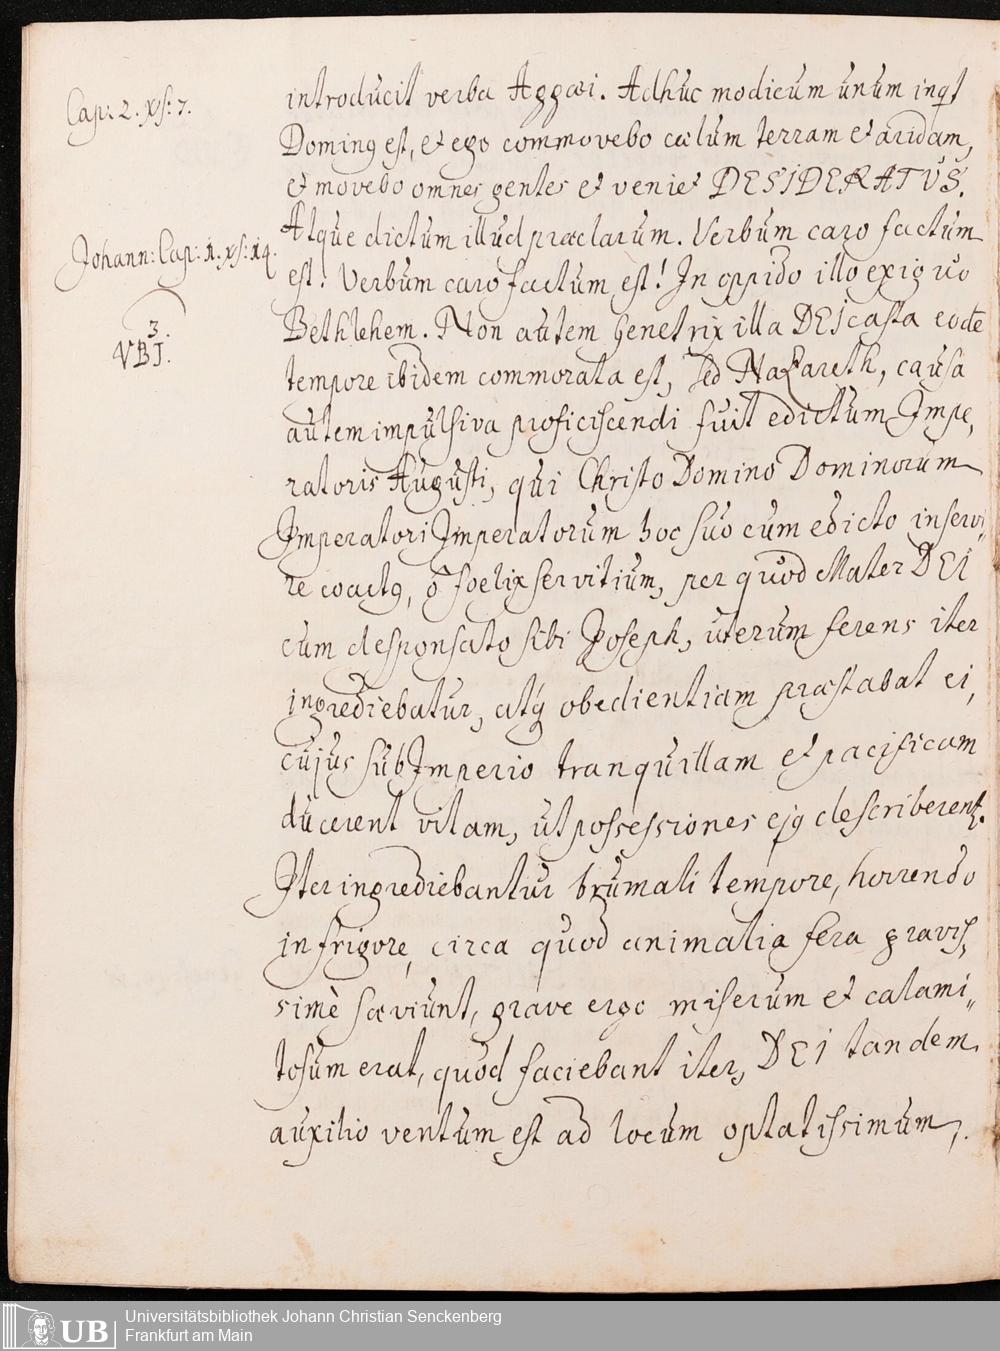 Cap: 2. ꝟs: 7.
introducit verba Aggæi. Adhuc modicum unum inqt
Dominꝯ est, et ego commovebo cælum terram et aridam,
et movebo omnes gentes et veniet DESIDERATUS.
Johann: Cap: 1. ꝟs: 14.
Atque dictum illud præclarum. Verbum caro factum
est! Verbum caro factum est! In oppido illo exiguo
3.
VBI.
Bethlehem. Non autem genetrix illa DEI casta eodē
tempore ibidem commorata est, sed Nazareth, causa
autem impulsiva proficiscendi fuit edictum Impe,
ratoris Augusti, qui Christo Domino Dominorum
Imperatori Imperatorum hoc suo cum edicto inservi,
re coactꝯ, ô foelix servitium, per quod Mater DEI
cum desponsato sibi Joseph, uterum ferens iter
ingrediebatur, atq́ obedientiam præstabat ei,
cujus sub Imperio tranquillam et pacificam
ducerent vitam, ut possessiones ejꝯ describerent.
Iter ingrediebantur brumali tempore, horrendo
in frigore, circa quod animalia fera gravis,
simè sæviunt, grave ergo miserum et calami,,
tosum erat, quod faciebant iter, DEI tandem
auxilio ventum est ad locum optatissimum,.
Universitätsbibliothek Johann Christian Senckenberg
UB
Frankfurt am Main